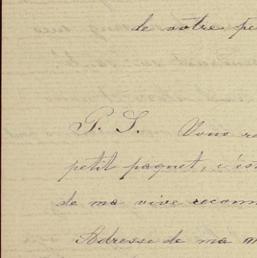 de votre pe
P. S. Vous re
petit paquet, c'es
de ma vive reconn
Adresse de ma m